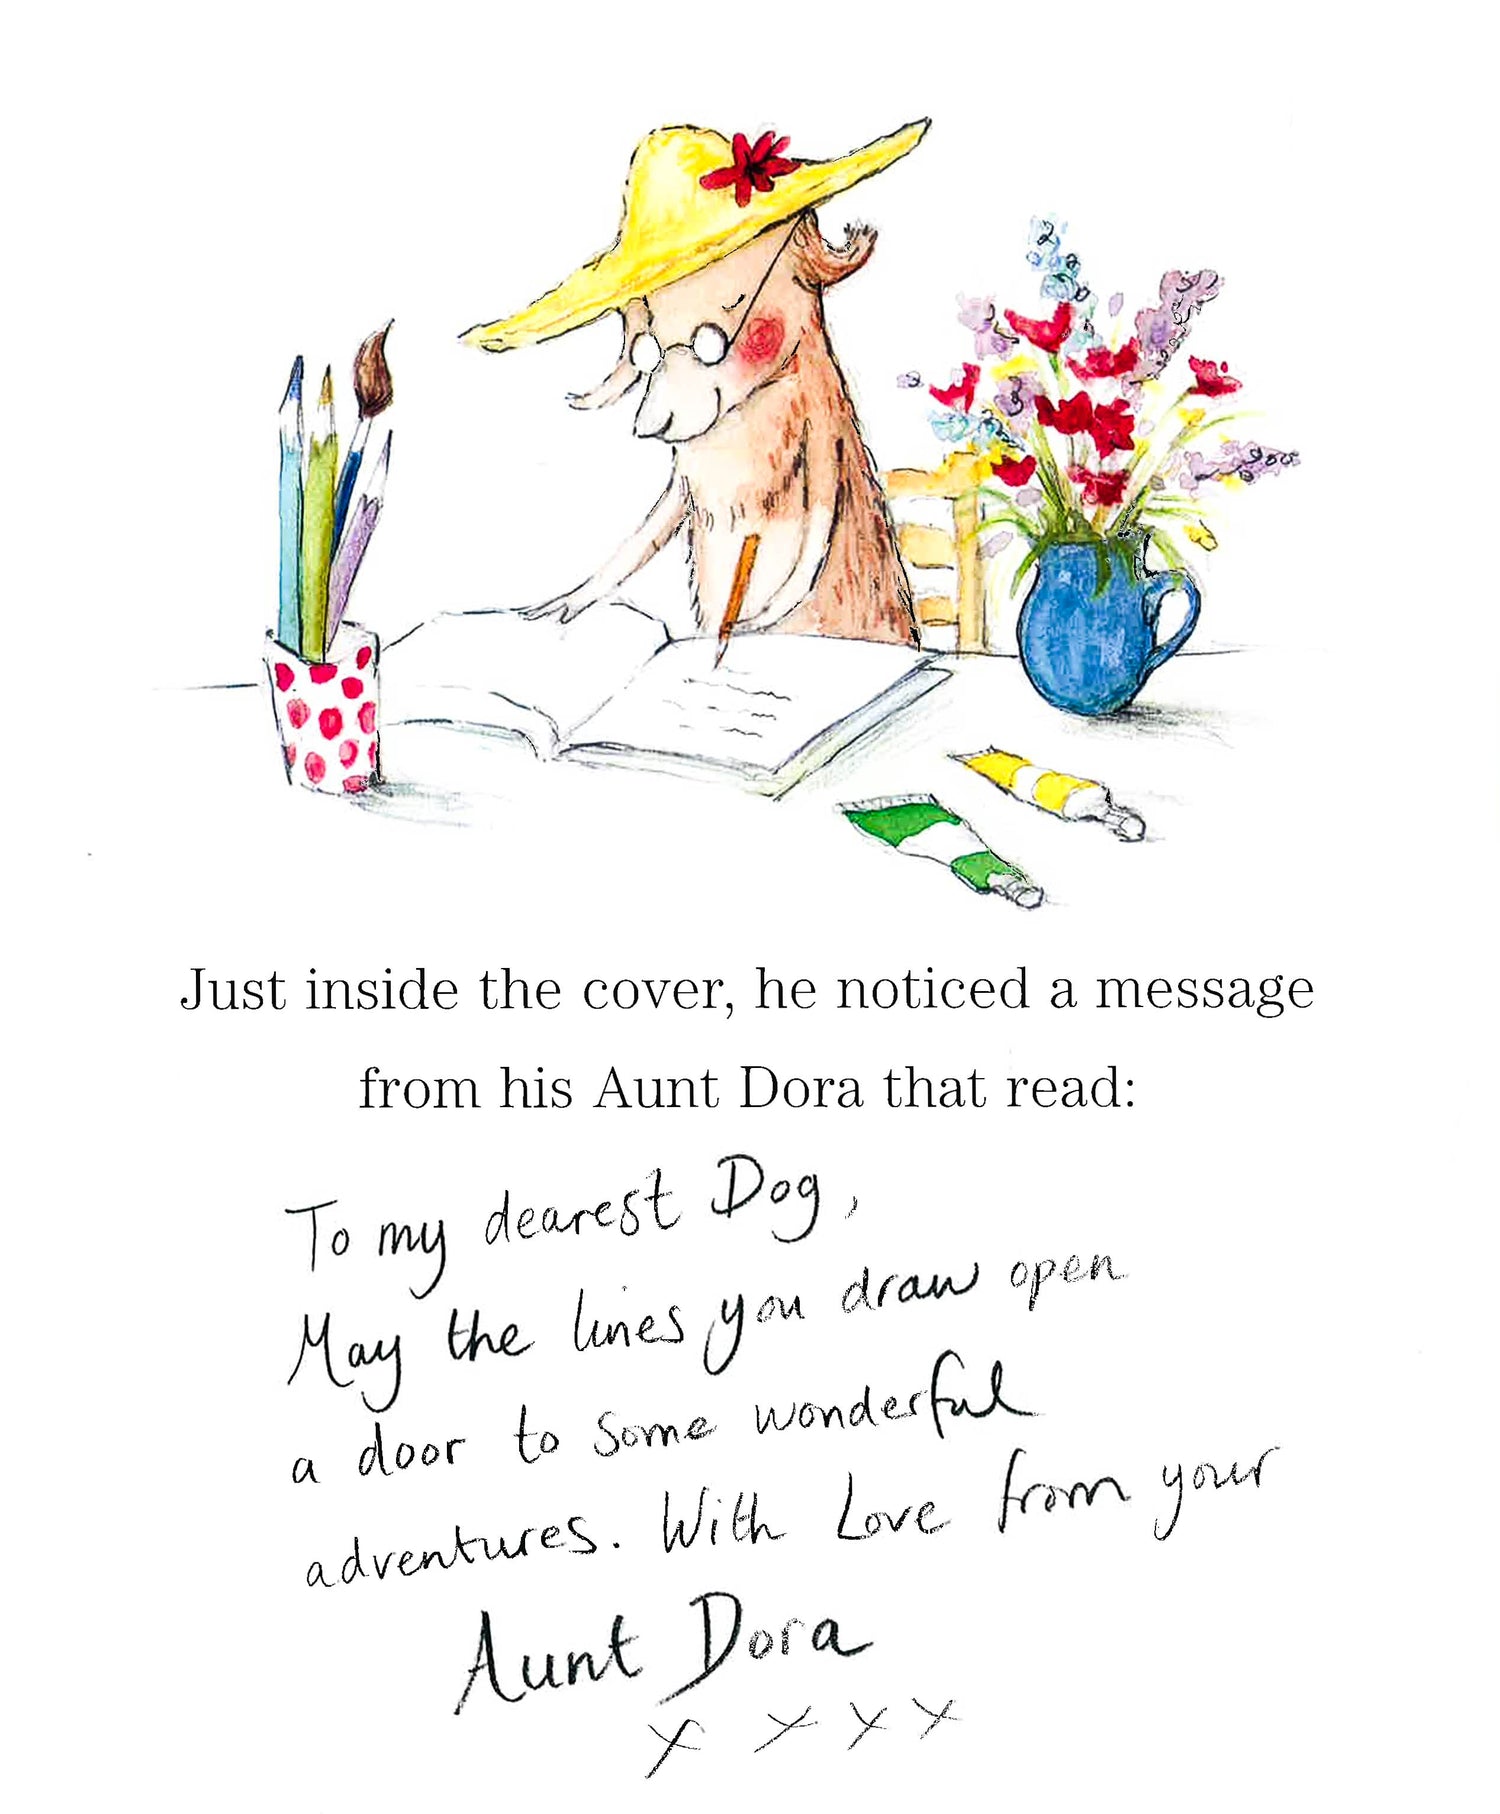 Just inside the cover, he noticed a message
from his Aunt Dora that read:
To my dearest Dog,
May the lines you draw open
a door to some wonderful
adventures. With Love from your
Aunt Dora
x x x x